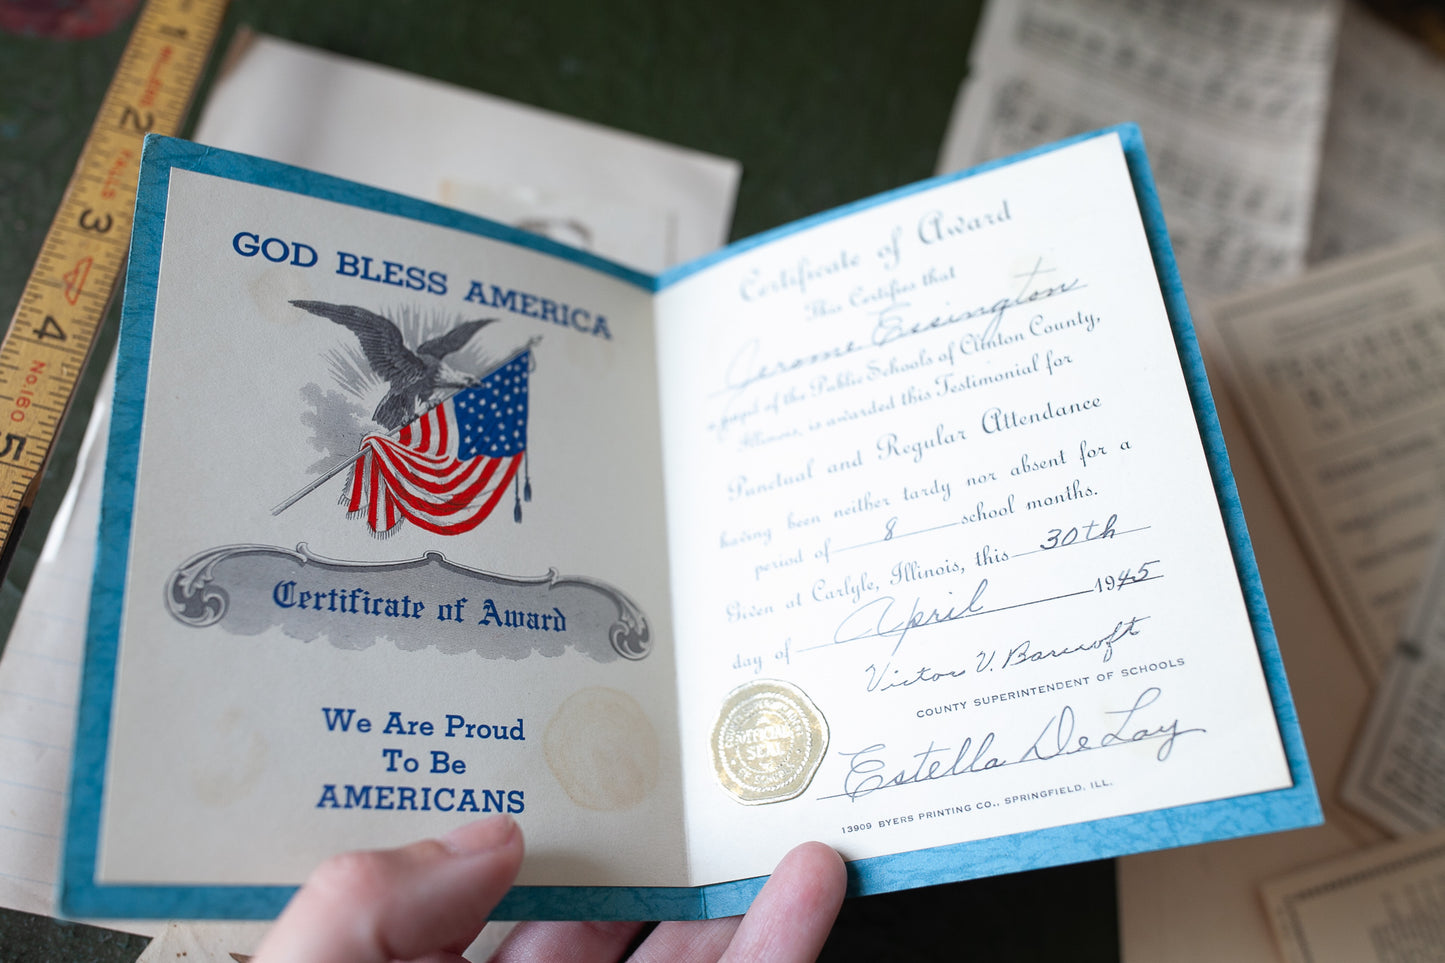 GOD BLESS AMERICA
Certificate of Award
We Are Proud
To Be
AMERICANS
Certificate of Award
This Certifies that
Jerome Essington
a pupil of the Public Schools of Clinton County,
Illinois, is awarded this Testimonial for
Punctual and Regular Attendance
having been neither tardy nor absent for a
period of 8 school months.
Given at Carlyle, Illinois, this 30th
day of April 1945
Victor V. Barcroft
COUNTY SUPERINTENDENT OF SCHOOLS
OFFICIAL
SEAL
Estella DeLay
13909 BYERS PRINTING CO., SPRINGFIELD, ILL.
1
2
3
4
No.160
5